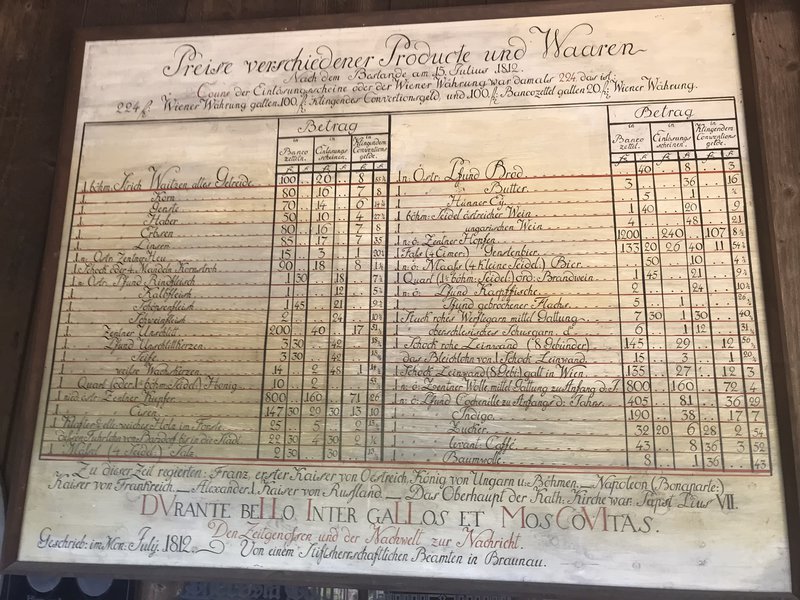 Preise verschiedener Producte und Waaren
Nach dem Bestande am 15. Julius 1812.
Cours der Einlösungsscheine oder der Wiener Währung war damals 224. das ist:
224 f. Wiener Währung galten 100 f. Klingendes Conventionsgeld, und 100 f. Bancozettel galten 20 f. Wiener Währung.
Betrag
in Banco zetteln. in Einlösungs scheinen. in Klingendem Conventions gelde.
1 böhm. Strich Waitzen altes Getreide 100 20 8
1 Korn 80 16 7 8
1 Gerste 70 14 6
1 Haber 50 10 4
1 Erbsen 80 16 7 8
1 Linsen 85 17 7 35
1 n. Östr. Zentner Heu 15 3 1
1 Schock oder 4 Mandeln Kornstroh 90 18 8
1 n. Östr. Pfund Rindfleisch 1 30 18
1 Kalbfleisch 12
1 Schöpsenfleisch 1 45 21
1 Schweinfleisch 2 24
1 Zentner Unschlitt 200 40 17
1 Pfund Unschlittkerzen 3 30 42
1 Seife 3 30 42
1 weisse Wachskerzen 14 2 48 1
1 Quart (oder 1 böhm. Seidel) Honig 10 2
1 nied. östr. Zentner Kupfer 800 160 71 26
1 Eisen 147 30 29 30 13 10
1 Klafter weiches Holz im Forste 25 5 2
22 30 4 30 2
(4 Seidel) Salz 2 30 30
Betrag
in Banco zetteln. in Einlösungs scheinen. in Klingendem Conventions gelde.
1 n. Östr. Pfund Brod 40 8 3
1 Butter 3 36 16
1 Hünner Ey 5 1
1 böhm. Seidel östreicher Wein 1 40 20 9
1 ungarischen Wein 4 48 21
1 n. ö. Zentner Hopfen 1200 240 107
1 Fass (4 Eimer) Gerstenbier 133 20 26 40 11
1 n. ö. Maass (4 kleine Seidel) Bier 50 10
1 Quart (1 böhm. Seidel) ord. Brandwein 1 45 21
1 n. ö. Pfund Karpffische 2 24
1 Pfund gebrochener Flachs 5 1
1 Stück rohes Werftgarn mittel Gattung 7 30 1 30
1 oberschlesisches Schussgarn 6 1 12
1 Schock rohe Leinwand (8 Gebünder) 145 29 12
das Bleichlohn von 1 Schock Leinwand 15 3 1
1 Schock Leinwand (8 Geb.) galt in Wien 135 27 12 3
1 n. ö. Zentner Wolle mittel Gattung zu Anfang d. J. 800 160 72 4
1 n. ö. Pfund Cochenille zu Anfange d. Jahrs 405 81 36 29
1 Indigo 190 38 17 7
1 Zucker 32 20 6 28 2 54
1 levant. Caffé 43 8 36 3 52
1 Baumwolle 8 1 36 43
Zu dieser Zeit regierten: Franz, erster Kaiser von Oestreich, König von Ungarn u. Böhmen, — Napoleon (Bonaparte)
Kaiser von Frankreich, — Alexander I. Kaiser von Russland. — Das Oberhaupt der Kath. Kirche war Papst Pius VII.
DVrante beLLo Inter gaLLos et MosCoVItas.
Den Zeitgenossen und der Nachwelt zur Nachricht.
Geschrieb. im Mon. July 1812. Von einem Stiftsherrschaftlichen Beamten in Braunau.